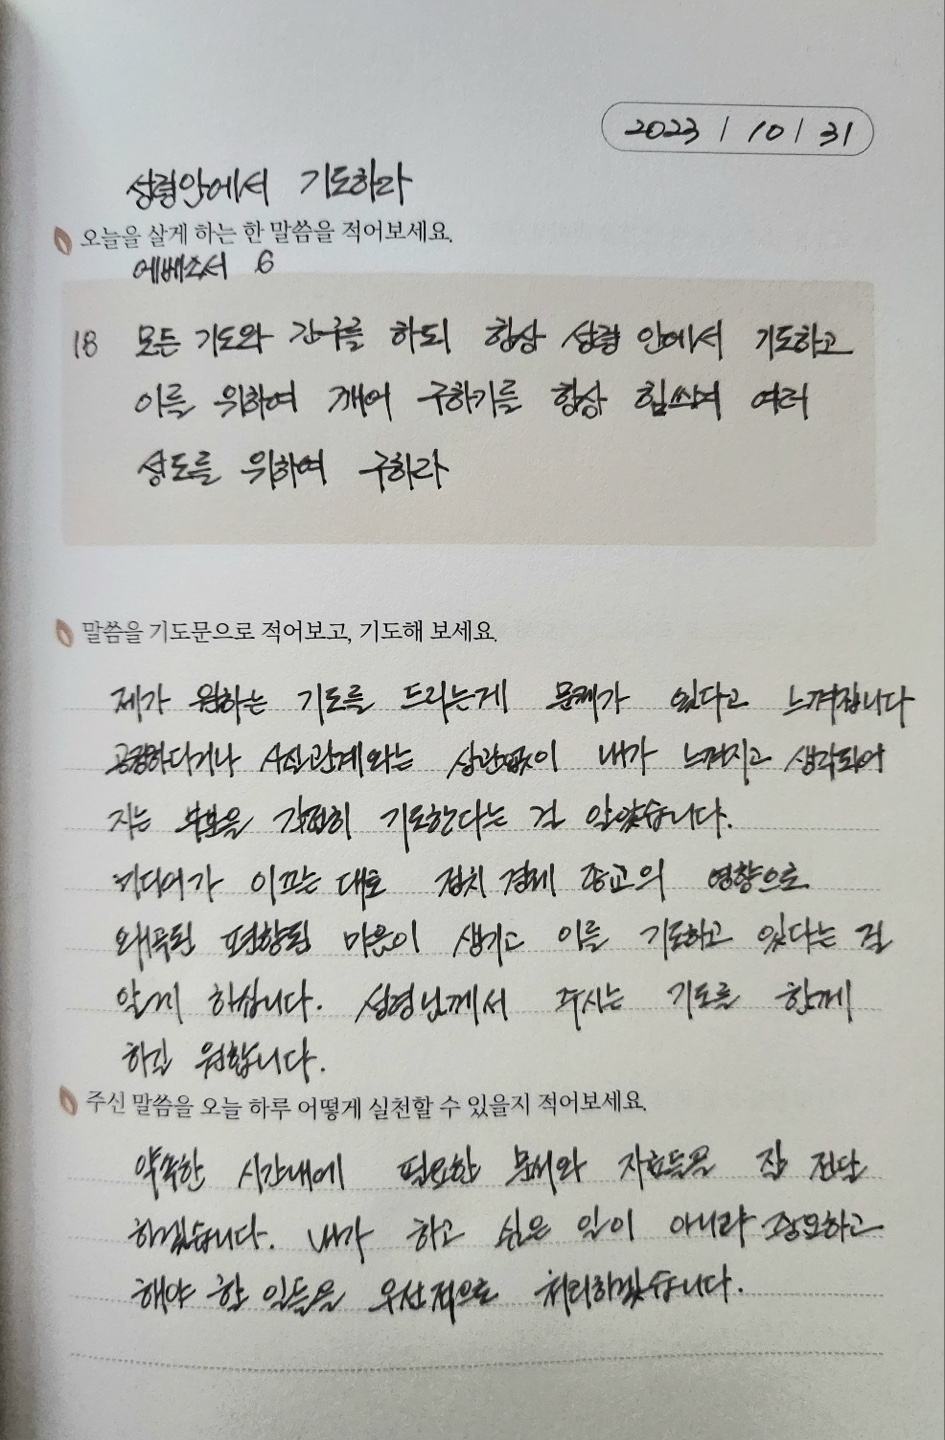 2023 / 10 / 31
성령안에서 기도하라
오늘을 살게 하는 한 말씀을 적어보세요.
에베소서 6
18 모든 기도와 간구를 하되 항상 성령 안에서 기도하고
이를 위하여 깨어 구하기를 항상 힘쓰며 여러
성도를 위하여 구하라
말씀을 기도문으로 적어보고, 기도해 보세요.
제가 원하는 기도를 드리는게 문제가 있다고 느껴집니다
공평하다거나 사실관계와는 상관없이 내가 느껴지고 생각되어
지는 부분을 간절히 기도한다는 걸 알았습니다.
미디어가 이끄는 대로 정치 경제 종교의 영향으로
왜곡된 편향된 마음이 생기고 이를 기도하고 있다는 걸
알게 하십니다. 성령님께서 주시는 기도를 함께
하길 원합니다.
주신 말씀을 오늘 하루 어떻게 실천할 수 있을지 적어보세요.
약속한 시간내에 필요한 문서와 자료들을 잘 전달
하겠습니다. 내가 하고 싶은 일이 아니라 중요하고
해야 할 일들을 우선적으로 처리하겠습니다.